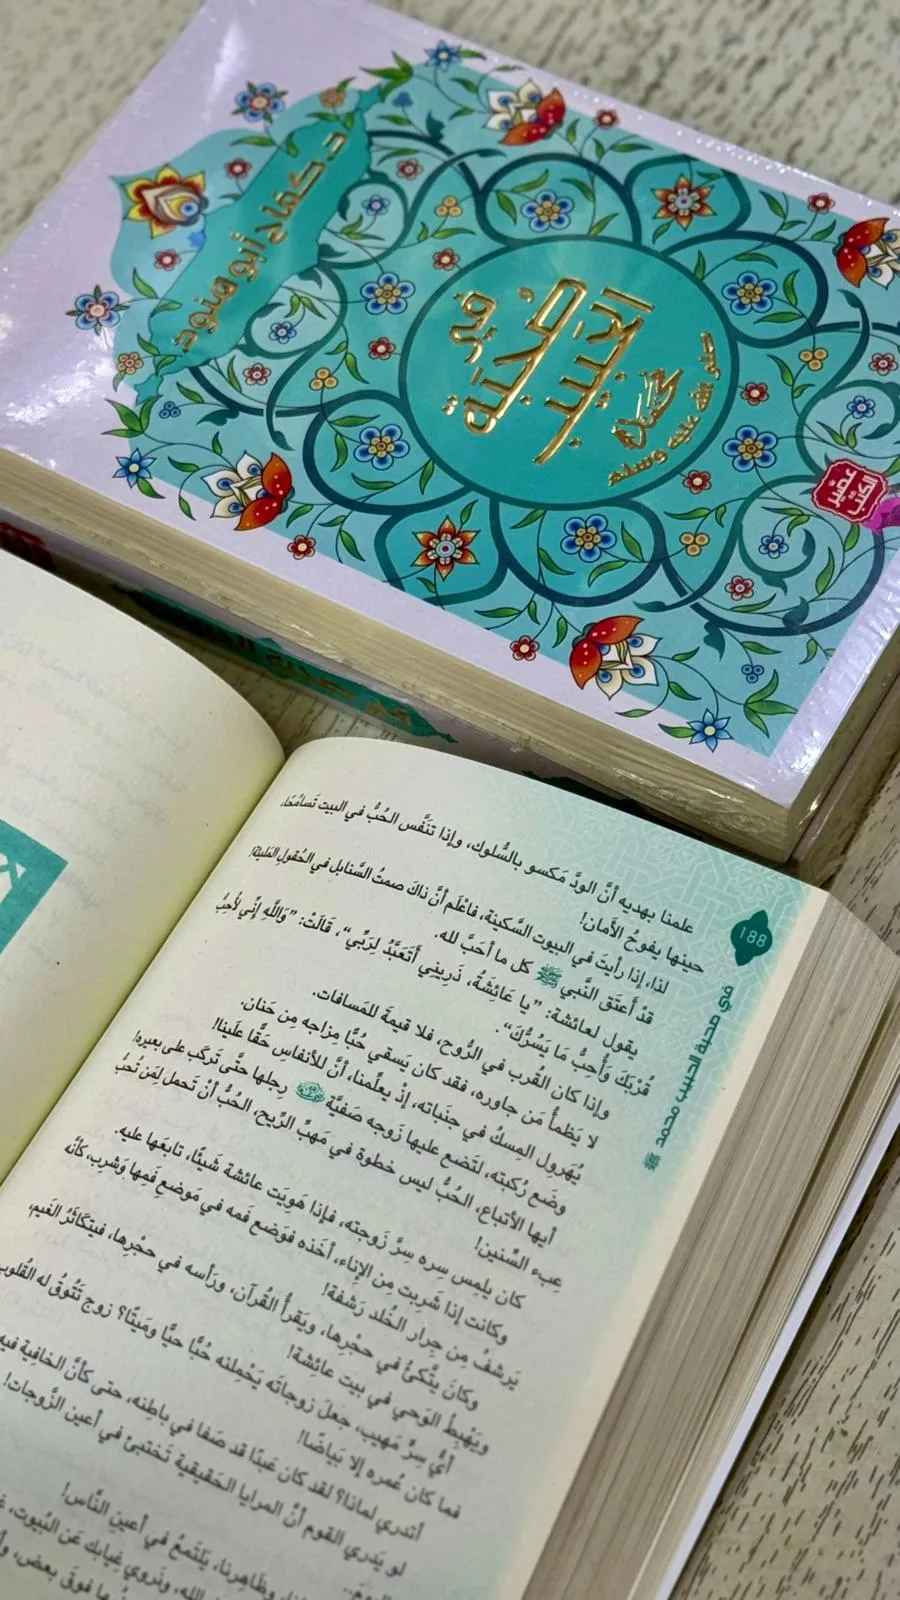 د. كفاح أبو هنود
في
صُحبَة
الحَبيب
محمد
صلى الله عليه وسلم
عصير
الكتب
188
في صحبة الحبيب محمد ﷺ
علمنا بهديه أنَّ الودَّ مَكسو بالسُّلوك، وإذا تنَفَّس الحُبُّ في البيت تَسامُحًا،
حينها يفوحُ الأمان!
لذا، إذا رأيتَ في البيوت السَّكينة، فاعْلَم أنَّ ذاكَ صمتُ السَّنابل في الحُقولِ المَليئة!
قدْ أعتَق النَّبي ﷺ كل ما أحَبَّ لله.
يقول لعائشة: "يا عَائشَةُ، ذَرِيني أَتَعَبَّدُ لِرَبِّي"، قَالَتْ: "وَاللَّهِ إنِّي لأُحِبُّ
قُرْبَكَ وَأُحِبُّ مَا يَسُرُّكَ".
وإذا كان القُرب في الرُّوح، فلا قيمةَ للمَسافات.
لا يَظمأُ مَن جاوره، فقد كان يَسقي حُبًّا مِزاجه مِن حَنان.
يُهَرول المِسكُ في جنَباته، إذ يعلِّمنا، أنَّ للأنفاسِ حَقًّا عَلَينا!
وضَع رُكبته، لتَضع عليها زَوجه صَفيَّة رِجلها حتَّى تَركَب على بعيره!
أيها الأتباع، الحُبُّ ليس خطوة في مَهبِّ الرِّيح، الحُبُّ أنْ تَحمل لِمَن تُحبُّ
عِبء السِّنين!
كان يلمِس سِره سِرَّ زَوجته، فإذا هَوِيَت عائشة شَيئًا، تابعَها عليه.
وكانت إذا شَرِبت مِن الإناء، أخَذه فوَضع فَمه في مَوضعِ فَمِها وَشرِب، كأنَّه
يَرشفُ مِن جِرار الخُلد رَشفة!
وكانَ يتَّكئُ في حجْرِها، ويَقرأُ القُرآن، ورَأسه في حجْرِها، فيتَكاثَرُ الغَيم،
ويَهْبِطُ الوَحي في بيت عائِشة!
أيُّ سِرٍّ مَهيب، جعلَ زوجاتَه يَحْمِلنه حُبًّا حيًّا ومَيتًا؟ زوج تَتُوقُ له القُلوب
فما كان عُمره إلا بَياضًا!
أتدري لماذا؟ لقد كان عَبدًا قد صَفا في باطِنه، حتى كأنَّ الخافِية فيه
لو يَدري القوم أنَّ المرايا الحَقيقية تَختبئ في أعين الزَّوجات!
وظَاهِرنا، يَلتَمعُ في أعينِ النَّاس!
الله، ونَروي غِيابك عَن البُيوت،
فوق بعض،